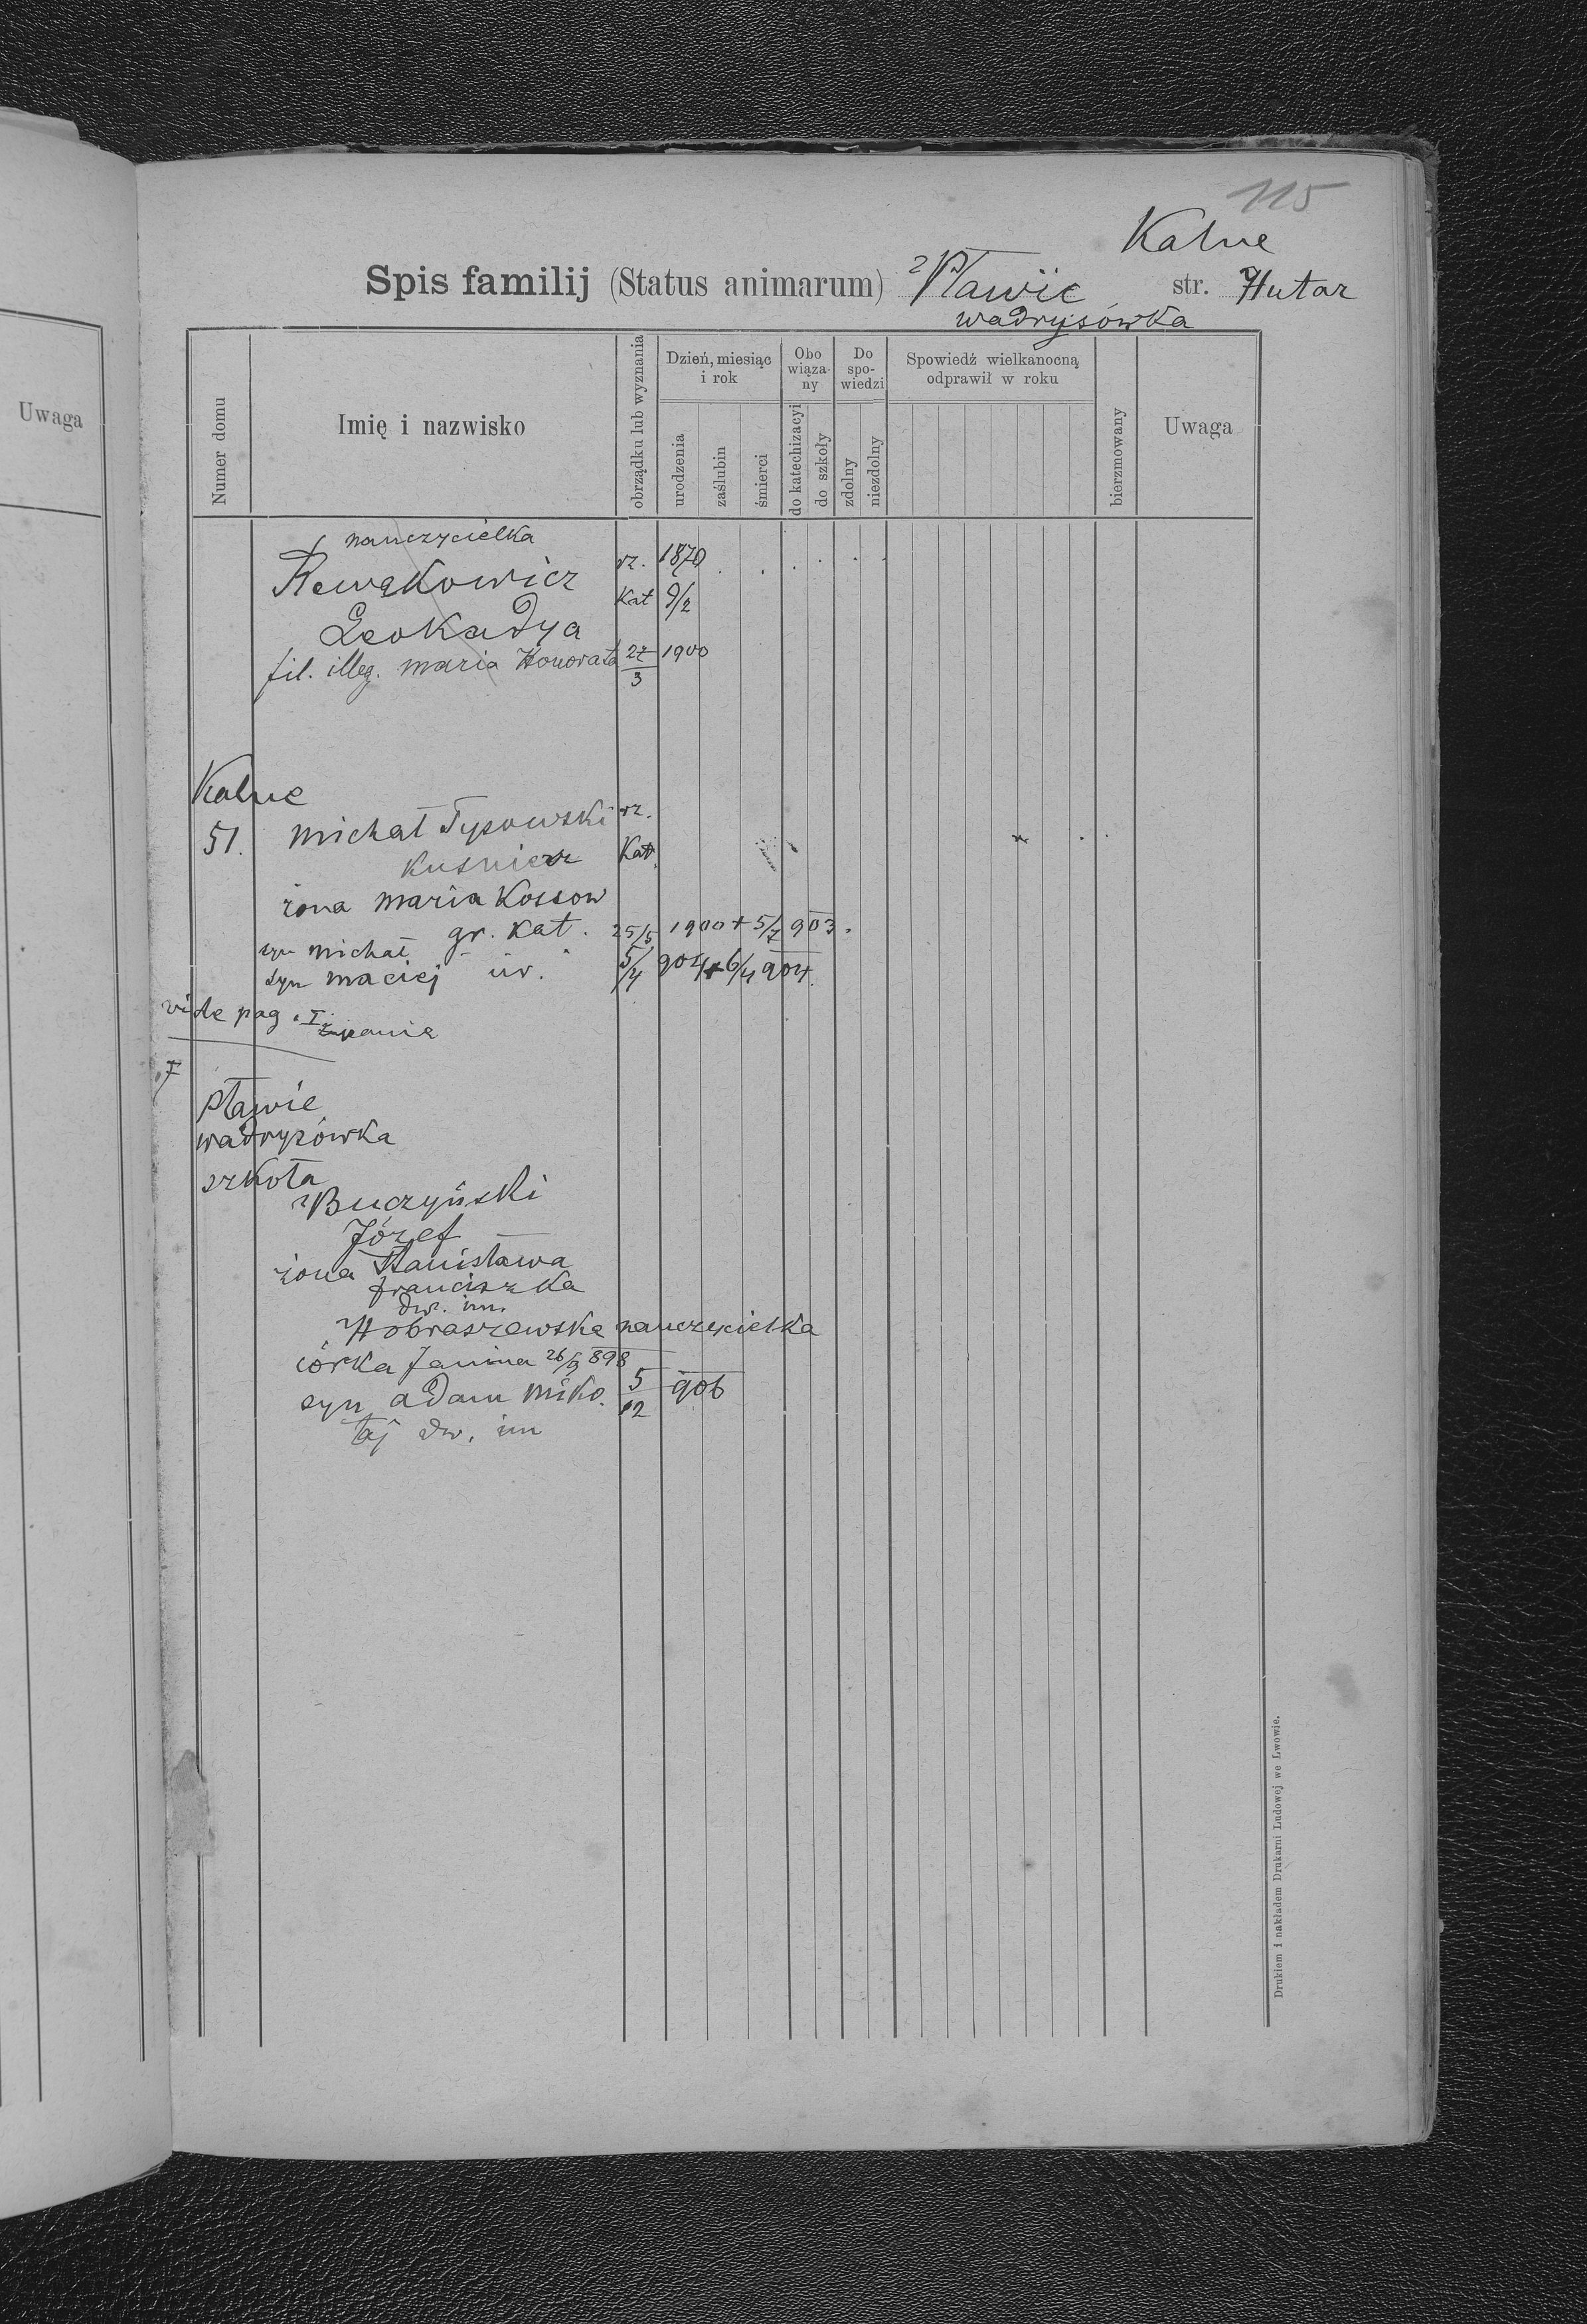 115
Kalne
Spis familij (Status animarum) Pławie str. Hutar
wadrysówka
Uwaga
Numer domu
Imię i nazwisko
obrządku lub wyznania
Dzień, miesiąc i rok
urodzenia
zaślubin
śmierci
Obo wiąza- ny
do katechizacyi
do szkoły
Do spo- wiedzi
zdolny
niezdolny
Spowiedź wielkanocną odprawił w roku
bierzmowany
Uwaga
nauczycielka
Rewakowicz rz. 1870
Kat 9/2
Leokadya
fil. illeg. maria Honorata 27/3 1900
Kalne
51. michał Typowski rz.
Kusnierz Kat.
żona maria Kossow
gr. Kat.
syn michał 25/5 1900 + 5/7 903.
syn maciej ur. 5/4 904 + 6/4 904.
vide pag. I
Pławie
wadrysówka
szkoła
Buczyński
Józef
żona Stanisława
franciszka
dw. im.
nauczycielka
córka Janina 898
syn adam miko. 5/12 906
łaj dw. im
Drukiem i nakładem Drukarni Ludowej we Lwowie.